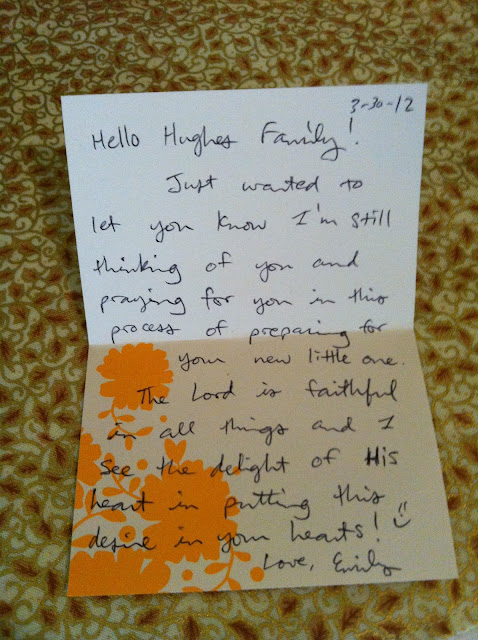 3-30-12
Hello Hughes Family!
Just wanted to
let you know I'm still
thinking of you and
praying for you in this
process of preparing for
your new little one.
The Lord is faithful
in all things and I
see the delight of His
heart in putting this
desire in your hearts! :)
Love, Emily